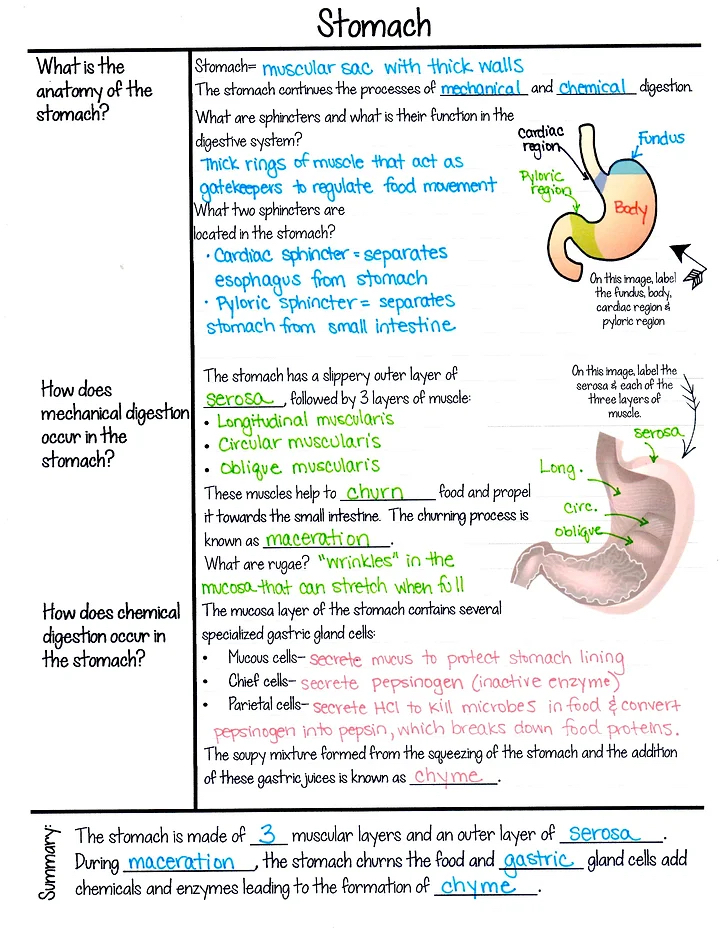 Stomach
What is the
anatomy of the
stomach?
Stomach= muscular sac with thick walls
The stomach continues the processes of mechanical and chemical digestion.
What are sphincters and what is their function in the
digestive system?
Thick rings of muscle that act as
gatekeepers to regulate food movement
What two sphincters are
located in the stomach?
• Cardiac sphincter = separates
esophagus from stomach
• Pyloric sphincter = separates
stomach from small intestine
Cardiac
region
Fundus
Pyloric
region
Body
On this image, label
the fundus, body,
cardiac region &
pyloric region
How does
mechanical digestion
occur in the
stomach?
The stomach has a slippery outer layer of
serosa, followed by 3 layers of muscle:
• Longitudinal muscularis
• Circular muscularis
• Oblique muscularis
These muscles help to churn food and propel
it towards the small intestine. The churning process is
known as maceration.
What are rugae? "wrinkles" in the
mucosa that can stretch when full
On this image, label the
serosa & each of the
three layers of
muscle.
serosa
Long.
circ.
oblique
How does chemical
digestion occur in
the stomach?
The mucosa layer of the stomach contains several
specialized gastric gland cells:
• Mucous cells- secrete mucus to protect stomach lining
• Chief cells- secrete pepsinogen (inactive enzyme)
• Parietal cells- secrete HCl to kill microbes in food & convert
pepsinogen into pepsin, which breaks down food proteins.
The soupy mixture formed from the squeezing of the stomach and the addition
of these gastric juices is known as chyme.
Summary:
The stomach is made of 3 muscular layers and an outer layer of serosa.
During maceration, the stomach churns the food and gastric gland cells add
chemicals and enzymes leading to the formation of chyme.